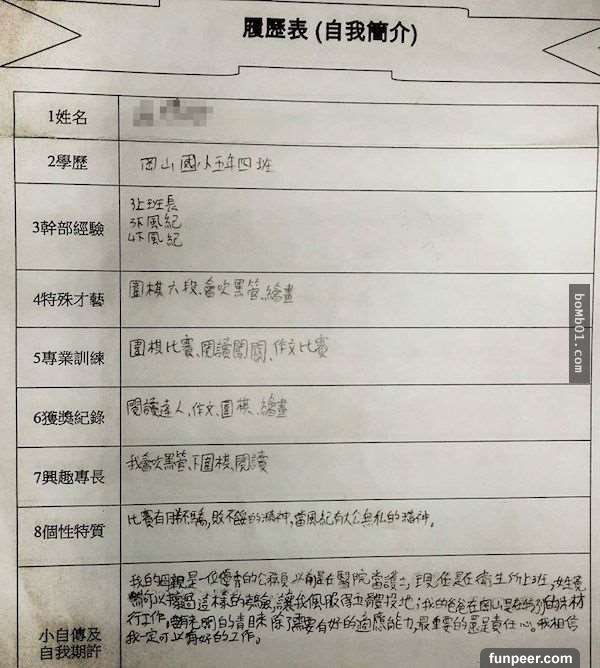 履歷表(自我簡介)
1姓名
2學歷 岡山國小五年四班
3幹部經驗 3上班長
3下風紀
4下風紀
4特殊才藝 圍棋六段、會吹黑管、繪畫
5專業訓練 圍棋比賽、閱讀闖關、作文比賽
6獲獎紀錄 閱讀達人、作文、圍棋、繪畫
7興趣專長 我會吹黑管、下圍棋、閱讀
8個性特質 比賽有勝不驕,敗不餒的精神,當風紀有大公無私的精神。
小自傳及
自我期許
我的母親是一位優秀的公務員,以前是在醫院當護士,現任是在衛生所上班,
可以接過這樣的考驗,讓我佩服得五體投地;我的爸爸在岡山
行工作,除了需要有好的適應能力,最重要的還是責任心。我相信
我一定可以有好的工作。
boMb01.com
funpeer.com